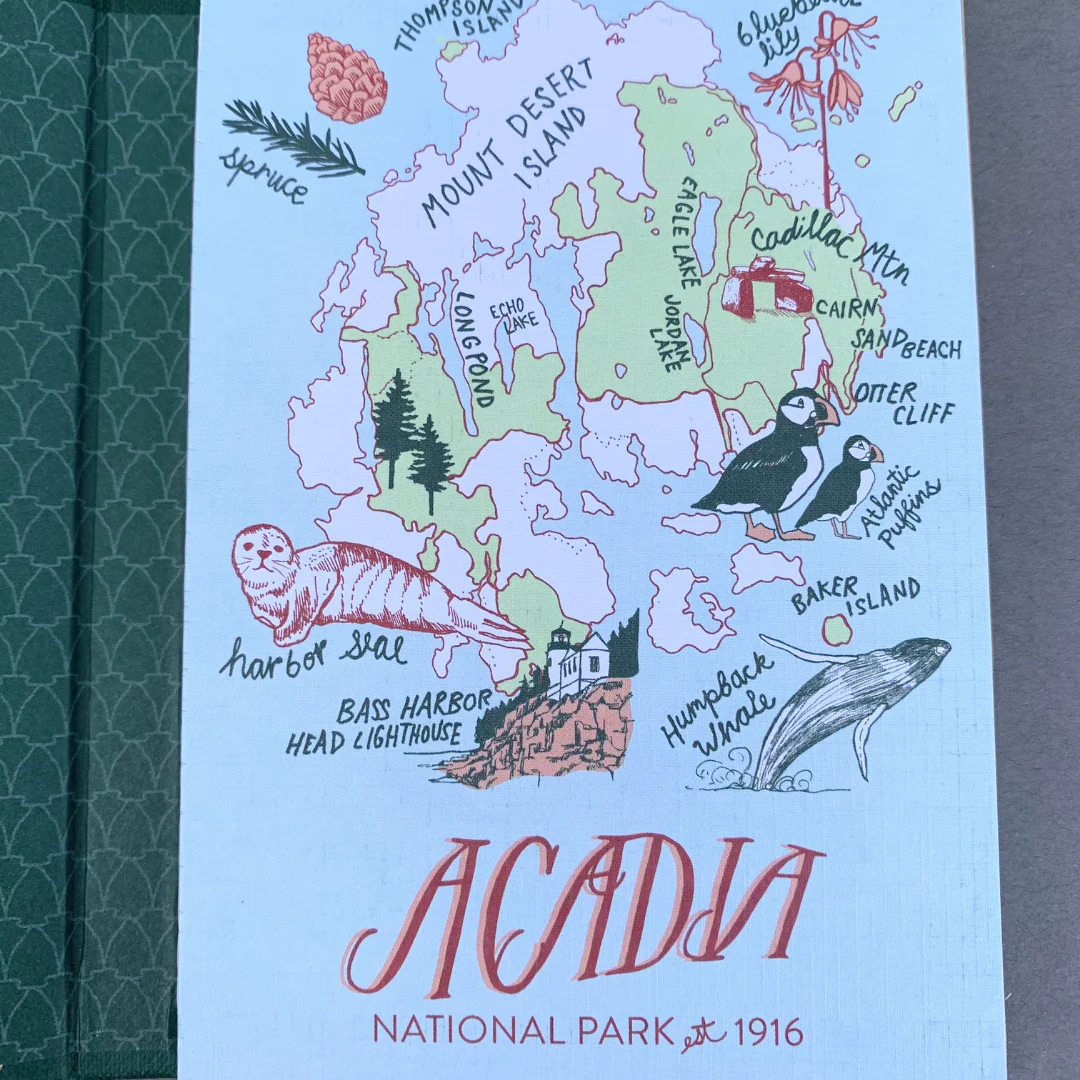 THOMPSON
ISLAND
lily
spruce
MOUNT DESERT
ISLAND
EAGLE LAKE
Cadillac Mtn
CAIRN
LONG POND
ECHO
LAKE
JORDAN
LAKE
SAND BEACH
OTTER
CLIFF
Atlantic
Puffins
harbor seal
BAKER
ISLAND
BASS HARBOR
HEAD LIGHTHOUSE
Humpback
Whale
ACADIA
NATIONAL PARK est 1916